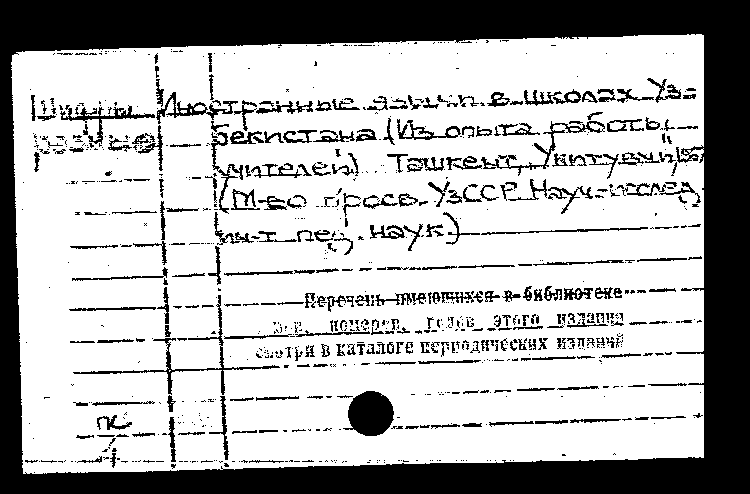 Шифры Иностранные языки в школах Уз=
разные бекистана (Из опыта работы
учителей) Ташкент, Укитувчи,
(М-во просв. УзССР Науч.-исслед.
ин-т пед. наук.)
Перечень имеющихся в библиотеке
номеров, годов этого издания
смотри в каталоге периодических изданий
ПК
4